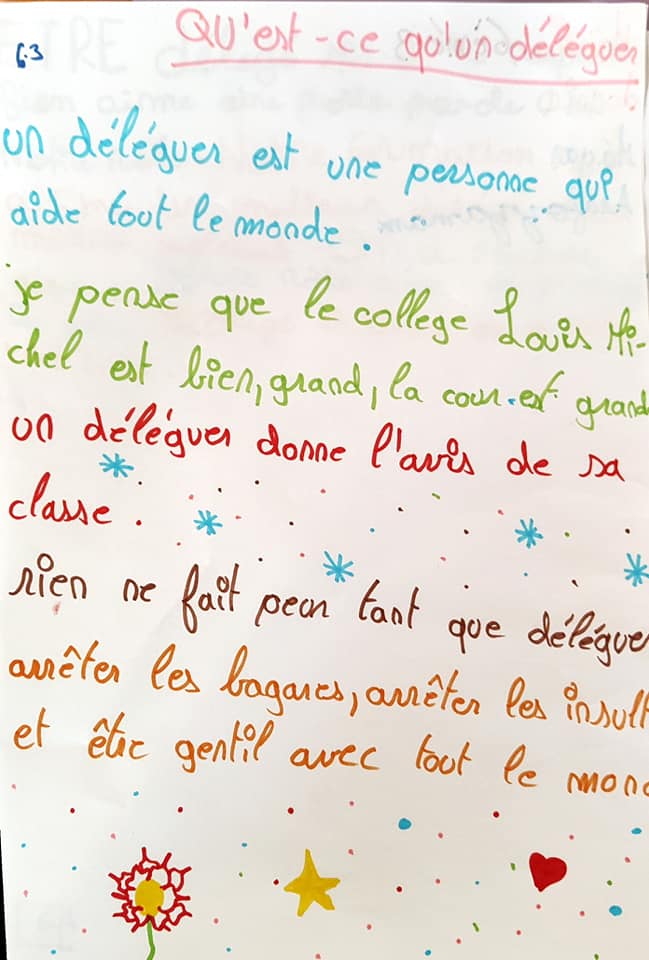 6.3
QU'est-ce qu'un déléguer
un déléguer est une personne qui
aide tout le monde.
je pense que le college Louis Mi-
chel est bien, grand, la cour est grand
un déléguer donne l'avis de sa
classe.
rien ne fait peur tant que délégue
arrêter les bagares, arrêter les insult
et être gentil avec tout le mond